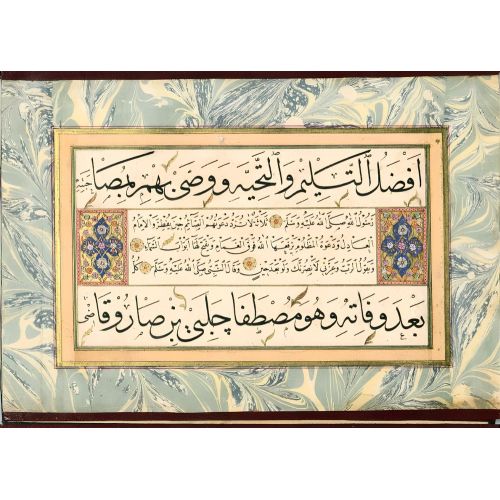 افضل التسليم والتحيه ووصى بهم بمصا
رسول الله صلى الله عليه وسلم ثلاثة لا ترد دعوتهم الصائم حين يفطر والامام
العادل ودعوة المظلوم يرفعها الله فوق الغمام وتفتح لها ابواب السماء
ويقول الرب وعزتي لانصرنك ولو بعد حين وقال النبي صلى الله عليه وسلم كل
بعد وفاته وهو مصطفا چلبي بن صاروقاضى